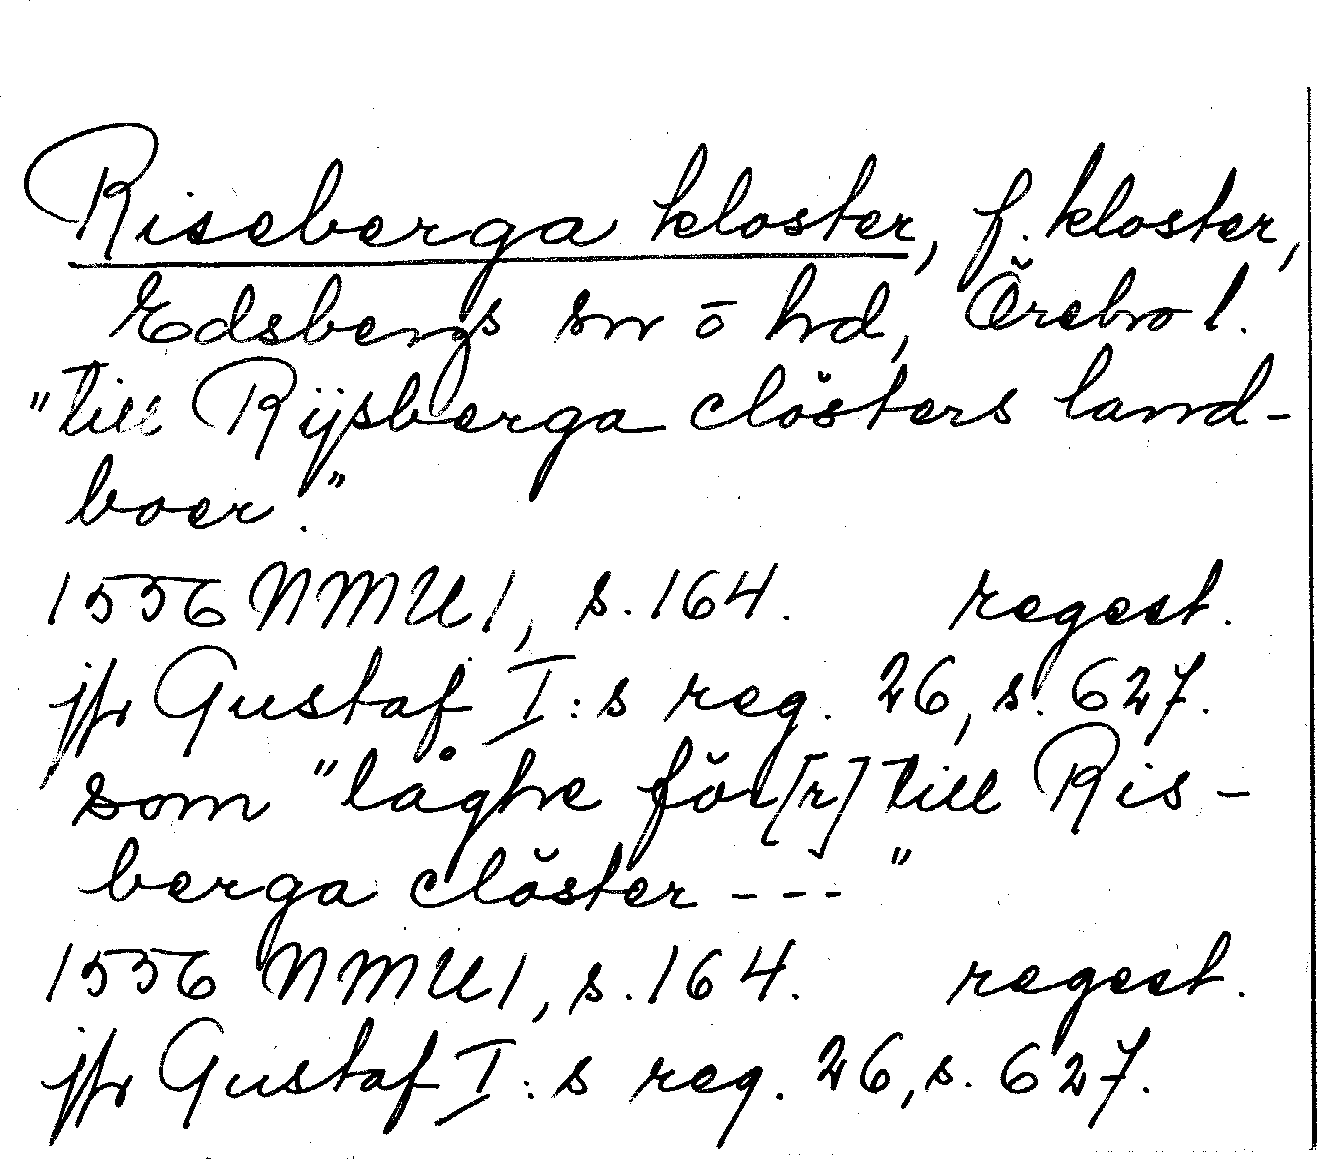 Riseberga kloster, f. kloster,
Edsbergs sn o hd, Örebro l.
"till Rijsberga clösters land-
boer."
1556 NMU 1, s. 164. regest.
jfr Gustaf I:s reg. 26, s. 627.
som "låghe för[r] till Ris-
berga clöster --- "
1556 NMU 1, s. 164. regest.
jfr Gustaf I:s reg. 26, s. 627.